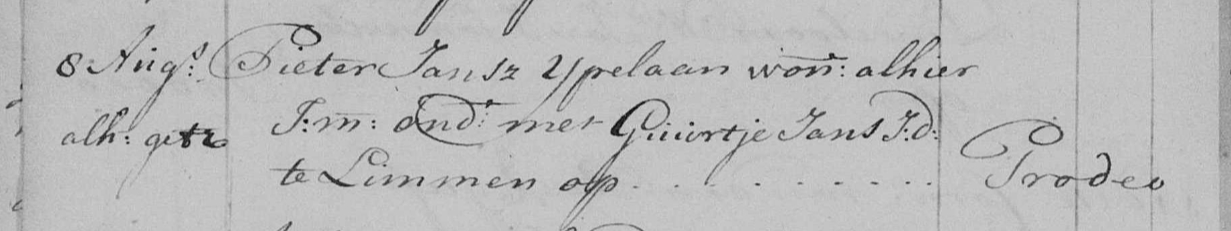 8 Augs: Pieter Jansz Ypelaan won: alhier
alh: getr J:m: ond: met Guurtje Jans J:d:
te Limmen op . . . . . . . . . . Prodeo